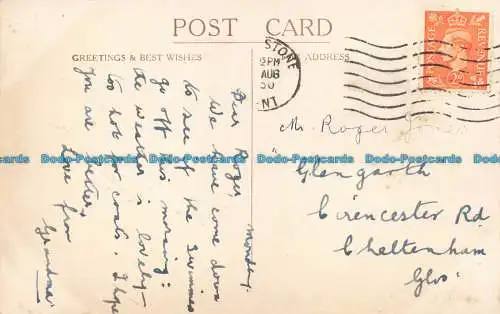 POST CARD
GREETINGS & BEST WISHES
ADDRESS
STONE
PM
AUG
50
NT
POSTAGE
REVENUE
Monday.
Dear Roger
We have come down
to see if the swimmers
go off this morning:
the weather is lovely –
too hot for coats. I hope
you are better,
Love from
Grandma
Mr. Roger Jones
"Glengarth
Cirencester Rd
Cheltenham
Glos"
Dodo-Postcards Dodo-Postcards Dodo-Postcards Dodo-Postcards Dodo-Postcards Dodo-Postcards